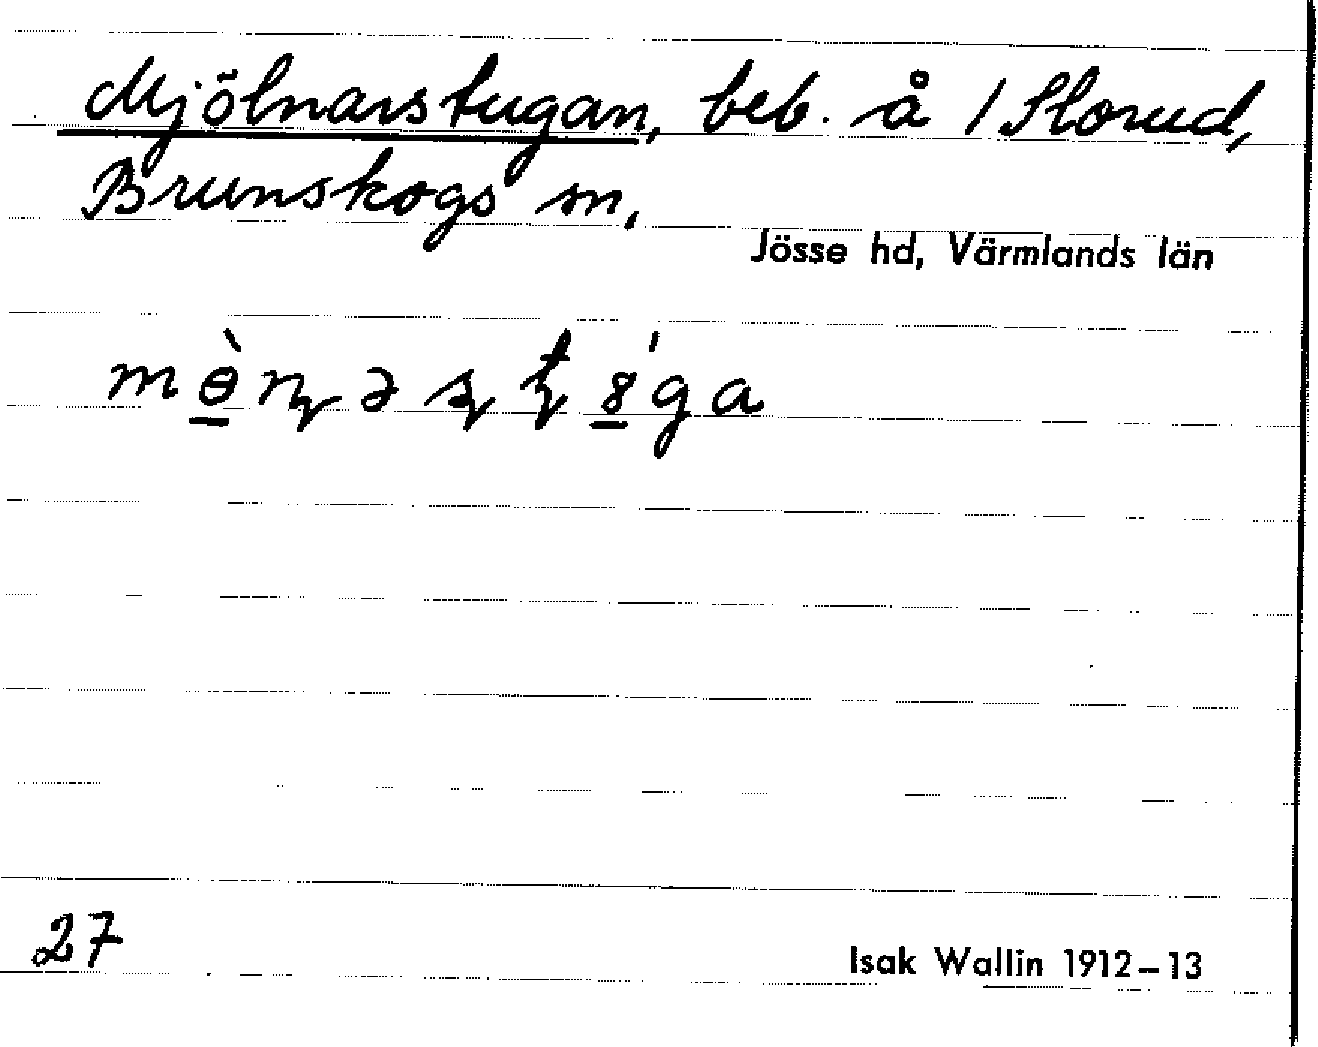 Mjölnarstugan, beb. å 1 Slorud,
Brunskogs sn,
Jösse hd, Värmlands län
27
Isak Wallin 1912–13